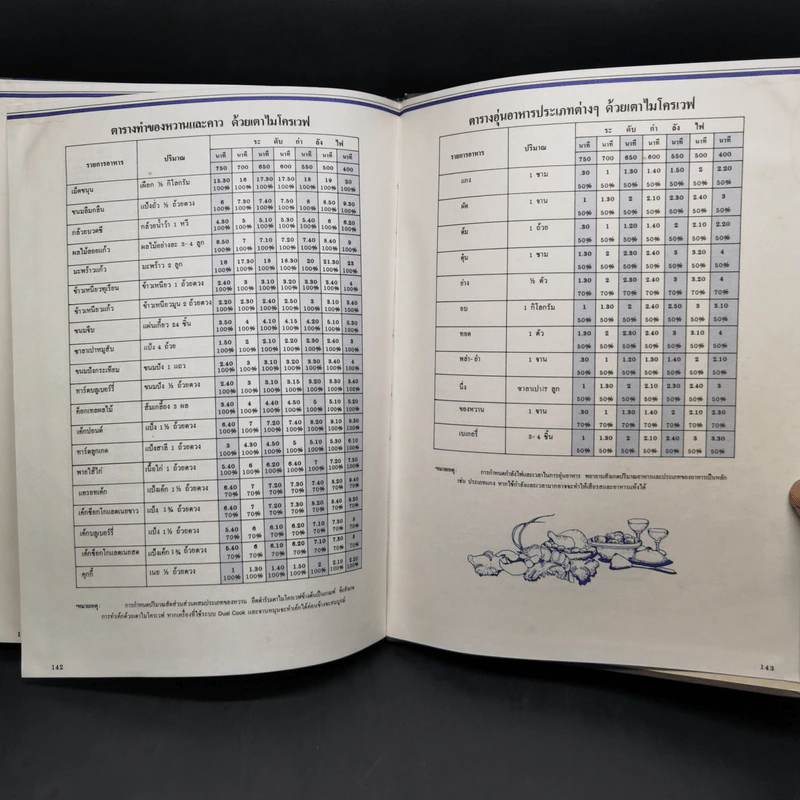 ตารางทำของหวานและคาว ด้วยเตาไมโครเวฟ
รายการอาหาร ปริมาณ ระ ดับ กำ ลัง ไฟ
นาที นาที นาที นาที นาที นาที นาที
750 700 650 600 550 500 400
เม็ดขนุน เผือก ½ กิโลกรัม 15.30 16 17.30 17.50 18 19 20
100% 100% 100% 100% 100% 100% 100%
ขนมลืมกลืน แป้งถั่ว ½ ถ้วยตวง 6 7.30 7.40 7.50 8 8.50 9.30
100% 100% 100% 100% 100% 100% 100%
กล้วยบวดชี กล้วยน้ำว้า 1 หวี 4.30 5 5.10 5.30 5.40 6 6.20
100% 100% 100% 100% 100% 100% 100%
ผลไม้ลอยแก้ว ผลไม้อย่างละ 3-4 ลูก 6.50 7 7.10 7.20 7.40 8.40 9
100% 100% 100% 100% 100% 100% 100%
มะพร้าวแก้ว มะพร้าว 2 ลูก 16 17.30 18 18.30 20 21.30 23
100% 100% 100% 100% 100% 100% 100%
ข้าวเหนียวทุเรียน ข้าวเหนียว 1 ถ้วยตวง 2.40 3 3.10 3.20 3.30 3.40 4
100% 100% 100% 100% 100% 100% 100%
ข้าวเหนียวแก้ว ข้าวเหนียวมูน 2 ถ้วยตวง 2.20 2.30 2.40 2.50 3 3.10 3.40
100% 100% 100% 100% 100% 100% 100%
ขนมจีบ แผ่นเกี๊ยว 24 ชิ้น 3.50 4 4.10 4.15 4.20 5.10 5.30
100% 100% 100% 100% 100% 100% 100%
ซาลาเปาหมูสับ แป้ง 4 ถ้วย 1.50 2 2.10 2.20 2.30 2.40 3
100% 100% 100% 100% 100% 100% 100%
ขนมปังกระเทียม ขนมปัง 1 แถว 2.40 3 3.10 3.20 3.30 3.40 4
100% 100% 100% 100% 100% 100% 100%
ทาร์ตบลูเบอร์รี่ ขนมปัง ½ ถ้วยตวง 2.40 3 3.10 3.15 3.20 3.30 3.40
100% 100% 100% 100% 100% 100% 100%
ค็อกเทลผลไม้ ส้มเกลี้ยง 3 ผล 3.40 4 4.40 4.50 5 5.10 5.20
100% 100% 100% 100% 100% 100% 100%
เค้กปอนด์ แป้ง 1½ ถ้วยตวง 6.40 7 7.20 7.40 8.20 9.10 9.30
100% 100% 100% 100% 100% 100% 100%
ทาร์ตลูกเกด แป้งสาลี 1 ถ้วยตวง 3 4.30 4.50 5 5.10 5.30 6.10
100% 100% 100% 100% 100% 100% 100%
พายไส้ไก่ เนื้อไก่ 1 ถ้วยตวง 5.40 6 6.20 6.40 7
100% 100% 100% 100% 100% 100% 100%
แครอทเค้ก แป้งเค้ก 1½ ถ้วยตวง 6.40 7 7.20 7.30 7.40 8.20 9.40
70% 70% 70% 70% 70% 70% 70%
เค้กช็อกโกแลตเนยขาว แป้ง 1¾ ถ้วยตวง 6.40 7 7.20 7.30 7.50 8.20 8.40
70% 70% 70% 70% 70% 70% 70%
เค้กบลูเบอร์รี่ แป้ง 1½ ถ้วยตวง 5.40 6 6.10 6.20 7.10 7.30 8
70% 70% 70% 70% 70% 70% 70%
เค้กช็อกโกแลตเนยสด แป้งเค้ก 1¾ ถ้วยตวง 5.40 6 6.10 6.20 7.10 7.30 8
70% 70% 70% 70% 70% 70% 70%
คุกกี้ เนย ½ ถ้วยตวง 1 1.30 1.40 1.50 2 2.10 2.20
100% 100% 100% 100% 100% 100% 100%
*หมายเหตุ การกำหนดปริมาณสัดส่วนส่วนผสมประเภทของหวาน
การทำเค้กด้วยเตาไมโครเวฟ หากเครื่องที่ใช้ระบบ Dual Cook และจานหมุนจะทำเค้กได้ค่อนข้างจะสมบูรณ์
142
ตารางอุ่นอาหารประเภทต่างๆ ด้วยเตาไมโครเวฟ
รายการอาหาร ปริมาณ ระ ดับ กำ ลัง ไฟ
นาที นาที นาที นาที นาที นาที นาที
750 700 650 600 550 500 400
แกง 1 ชาม .30 1 1.30 1.40 1.50 2 2.20
50% 50% 50% 50% 50% 50% 50%
ผัด 1 จาน 1 1.30 2 2.10 2.30 2.40 3
50% 50% 50% 50% 50% 50% 50%
ต้ม 1 ถ้วย .30 1 1.20 1.40 2 2.10 2.20
50% 50% 50% 50% 50% 50% 50%
ตุ๋น 1 ชาม 1.30 2 2.30 2.40 3 3.20 4
50% 50% 50% 50% 50% 50% 50%
ย่าง ½ ตัว 1.30 2 2.30 2.40 3 3.20 4
70% 70% 70% 70% 70% 70% 70%
อบ 1 กิโลกรัม 1 1.30 2 2.40 2.50 3 3.10
50% 50% 50% 50% 50% 50% 50%
ทอด 1 ตัว 1.30 2 2.30 2.40 3 3.10 4
50% 50% 50% 50% 50% 50% 50%
พล่า-ยำ 1 จาน .30 1 1.20 1.30 1.40 2 2.10
50% 50% 50% 50% 50% 50% 50%
นึ่ง ซาลาเปา 7 ลูก 1 1.30 2 2.10 2.30 2.40 3
50% 50% 50% 50% 50% 50% 50%
ของหวาน 1 จาน .30 1 1.30 1.40 2 2.10 2.30
70% 70% 70% 70% 70% 70% 70%
เบเกอรี่ 3-4 ชิ้น 1 1.30 2 2.10 2.40 3 3.30
50% 50% 50% 50% 50% 50% 50%
*หมายเหตุ การกำหนดกำลังไฟและเวลาในการอุ่นอาหาร พยายามสังเกตปริมาณอาหารและประเภทของอาหารเป็นหลัก
เช่น ประเภทแกง หากใช้กำลังและเวลามากอาจจะทำให้เสียรสและอาหารแห้งได้
143